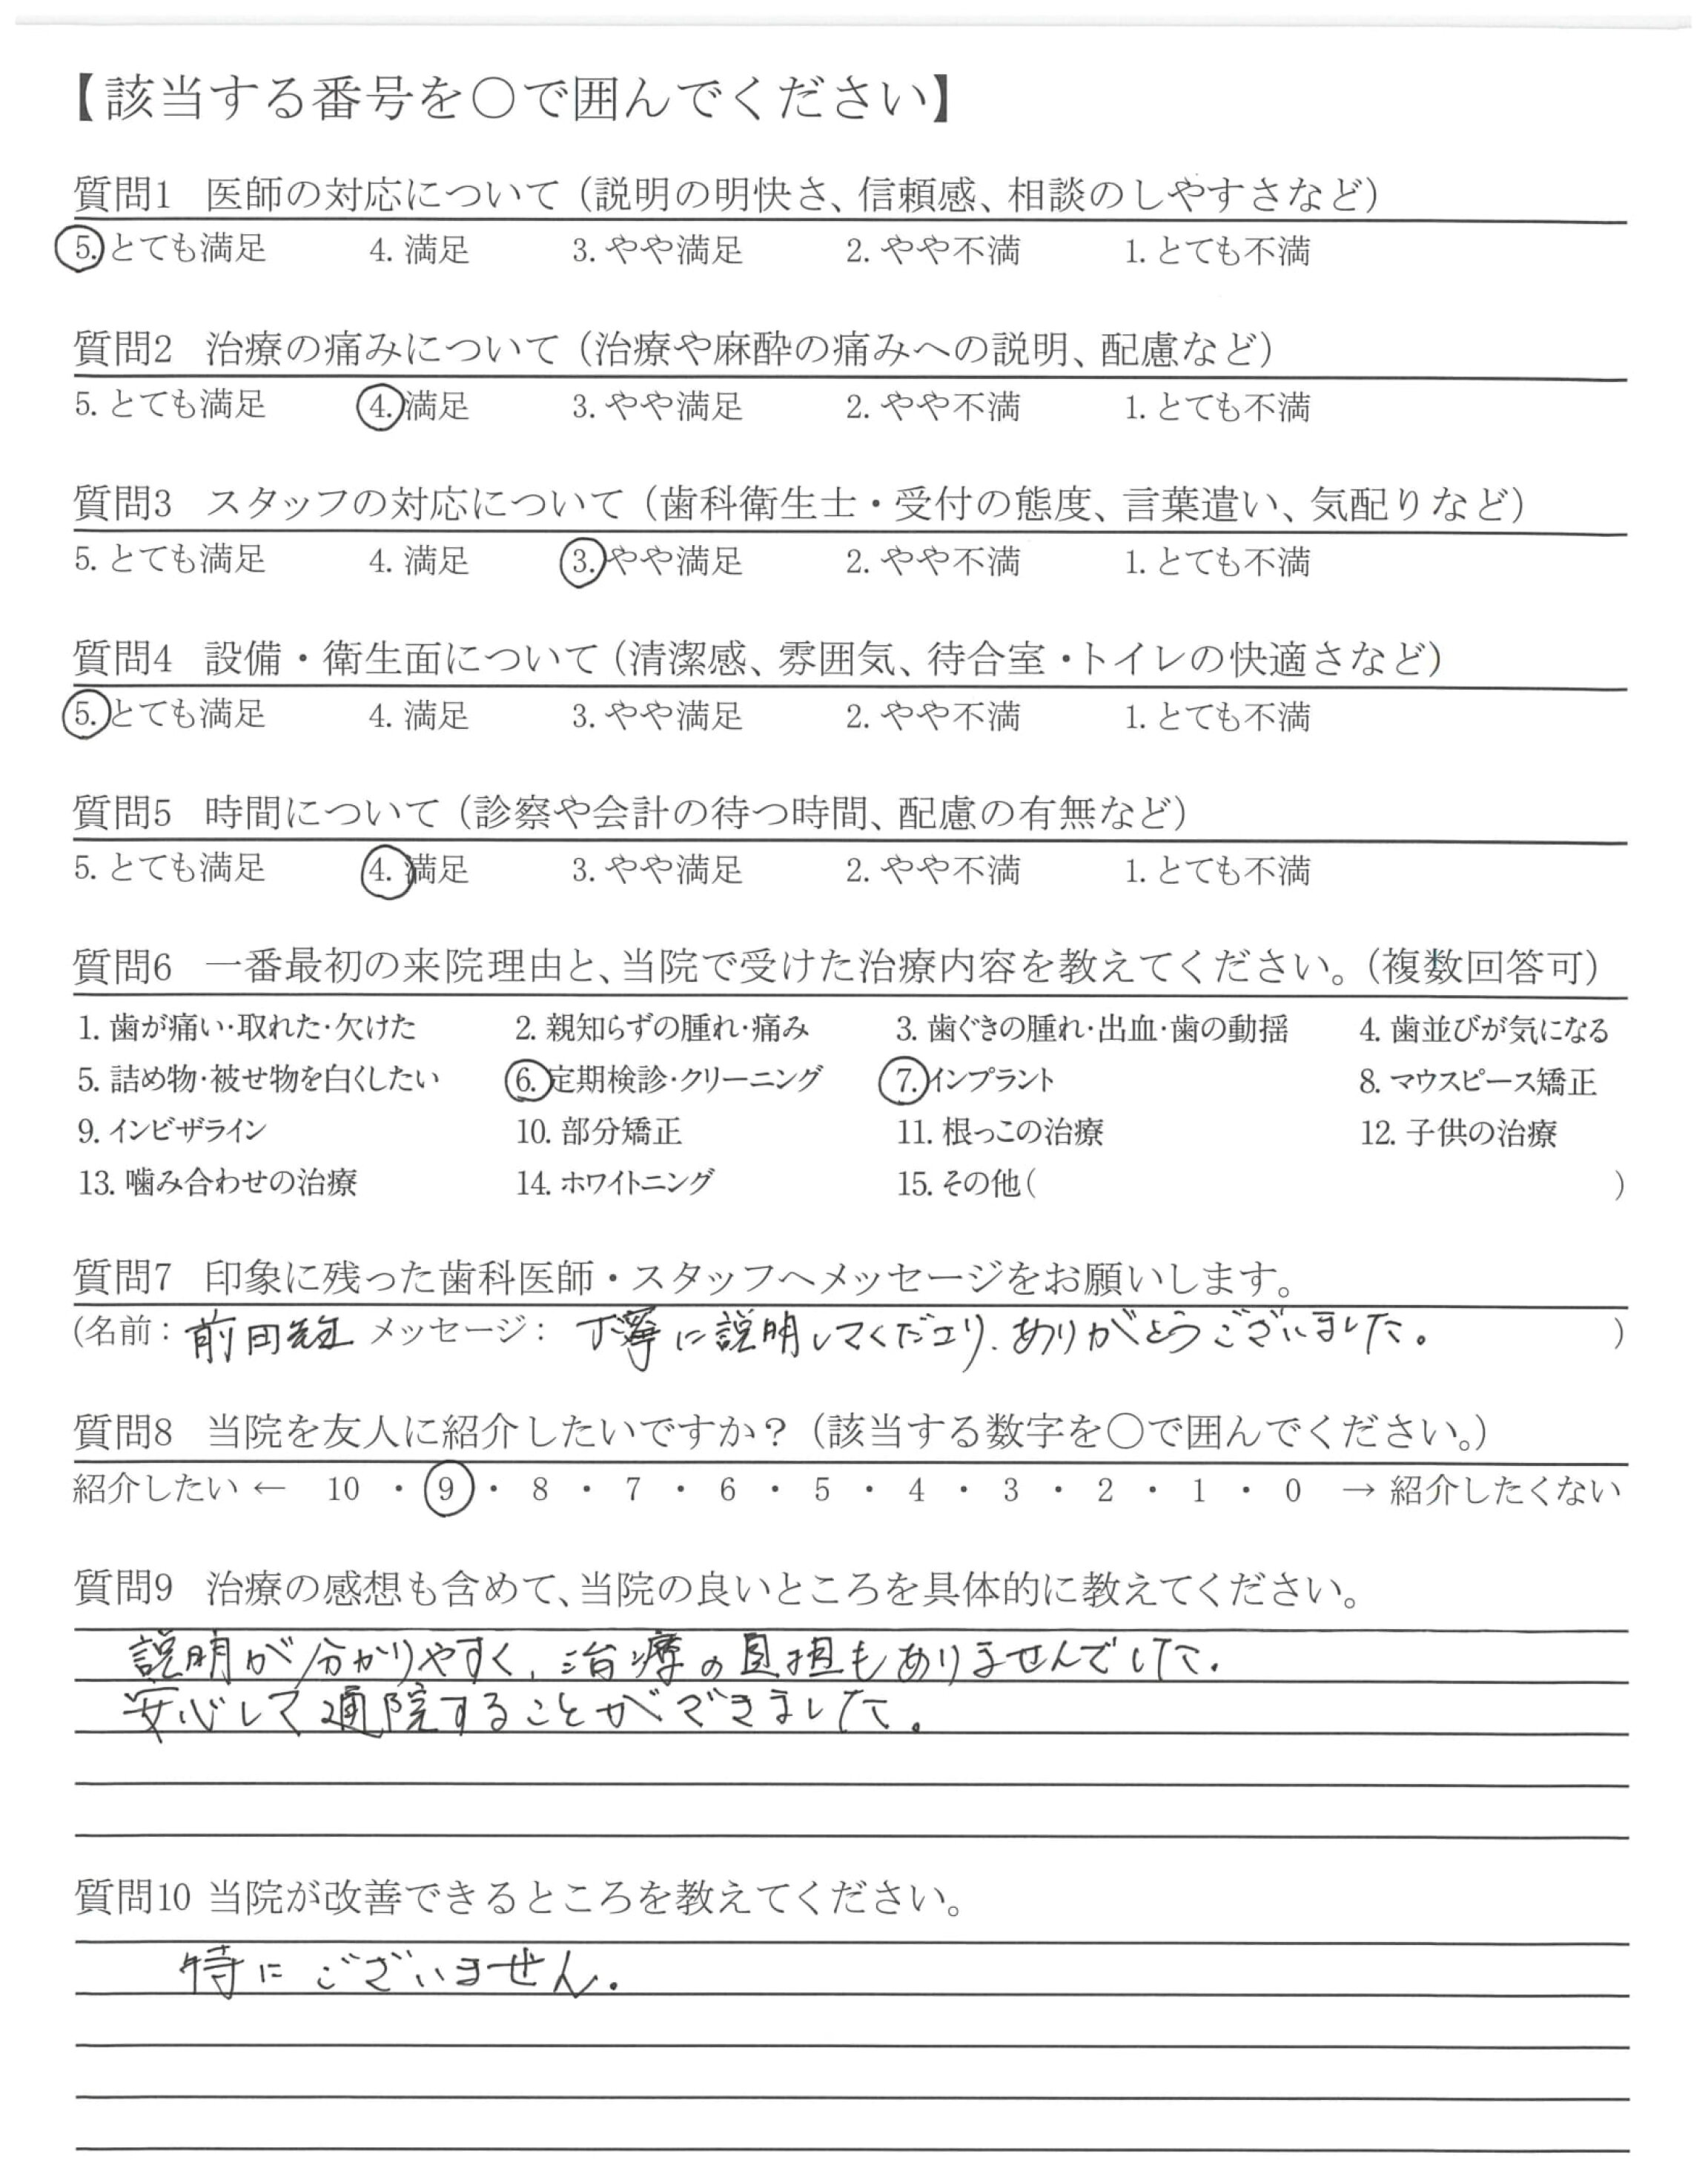 【該当する番号を〇で囲んでください】
質問1 医師の対応について（説明の明快さ、信頼感、相談のしやすさなど）
5. とても満足 4. 満足 3. やや満足 2. やや不満 1. とても不満
質問2 治療の痛みについて（治療や麻酔の痛みへの説明、配慮など）
5. とても満足 4. 満足 3. やや満足 2. やや不満 1. とても不満
質問3 スタッフの対応について（歯科衛生士・受付の態度、言葉遣い、気配りなど）
5. とても満足 4. 満足 3. やや満足 2. やや不満 1. とても不満
質問4 設備・衛生面について（清潔感、雰囲気、待合室・トイレの快適さなど）
5. とても満足 4. 満足 3. やや満足 2. やや不満 1. とても不満
質問5 時間について（診察や会計の待つ時間、配慮の有無など）
5. とても満足 4. 満足 3. やや満足 2. やや不満 1. とても不満
質問6 一番最初の来院理由と、当院で受けた治療内容を教えてください。（複数回答可）
1. 歯が痛い･取れた･欠けた 2. 親知らずの腫れ･痛み 3. 歯ぐきの腫れ･出血･歯の動揺 4. 歯並びが気になる
5. 詰め物･被せ物を白くしたい 6. 定期検診･クリーニング 7. インプラント 8. マウスピース矯正
9. インビザライン 10. 部分矯正 11. 根っこの治療 12. 子供の治療
13. 噛み合わせの治療 14. ホワイトニング 15. その他( )
質問7 印象に残った歯科医師・スタッフへメッセージをお願いします。
(名前：前田先生 メッセージ： 丁寧に説明してくださり、ありがとうございました。 )
質問8 当院を友人に紹介したいですか？（該当する数字を〇で囲んでください。）
紹介したい ← 10 ・ 9 ・ 8 ・ 7 ・ 6 ・ 5 ・ 4 ・ 3 ・ 2 ・ 1 ・ 0 → 紹介したくない
質問9 治療の感想も含めて、当院の良いところを具体的に教えてください。
説明が分かりやすく、治療の負担もありませんでした。
安心して通院することができました。
質問10 当院が改善できるところを教えてください。
特にございません。